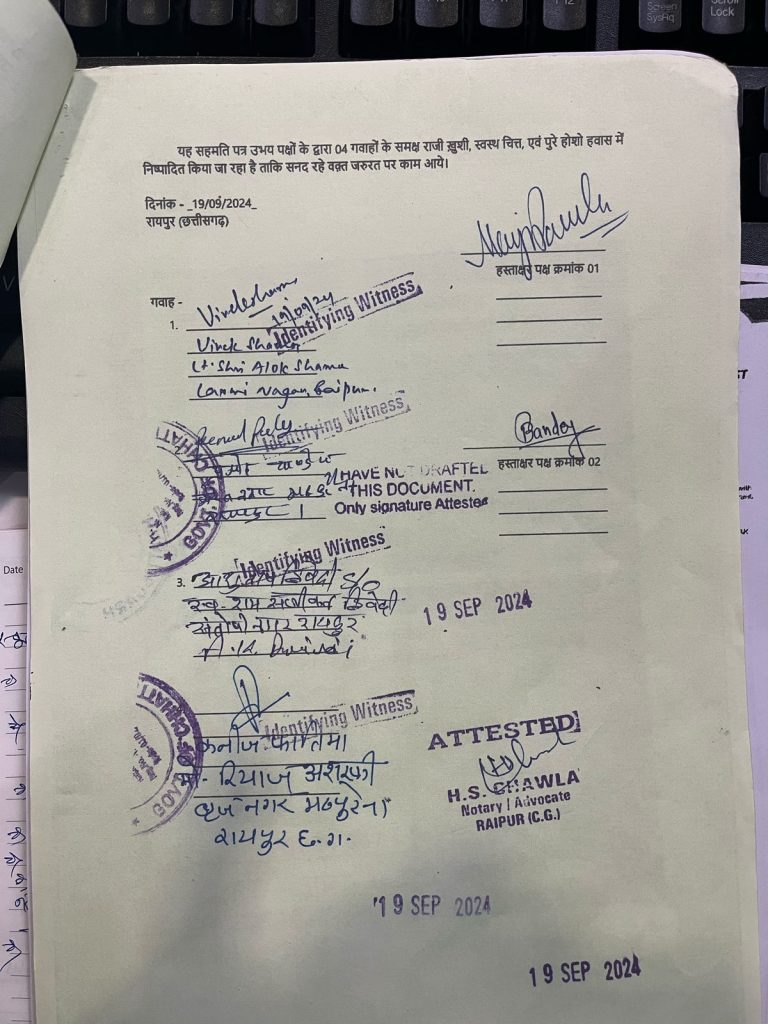 Screen
SysRq
Scroll
Lock
यह सहमति पत्र उभय पक्षों के द्वारा 04 गवाहों के समक्ष राजी खुशी, स्वस्थ चित्त, एवं पुरे होशो हवास में
निष्पादित किया जा रहा है ताकि सनद रहे वक़्त जरुरत पर काम आये।
दिनांक - _19/09/2024_
रायपुर (छत्तीसगढ़)
हस्ताक्षर पक्ष क्रमांक 01
गवाह -
19/09/24
Identifying Witness
1.
Vivek Sharma
Lt. Shri Alok Sharma
Laxmi Nagar, Raipur.
Identifying Witness
Bandey
हस्ताक्षर पक्ष क्रमांक 02
I HAVE NOT DRAFTED
THIS DOCUMENT.
Only signature Attested
Identifying Witness
3.
S/O
स्व. राम सजीवन द्विवेदी
संतोषी नगर रायपुर
19 SEP 2024
Identifying Witness
कनीज फातिमा
रियाज अशरफी
नगर मठपुरेना
रायपुर छ.ग.
ATTESTED
H.S. CHAWLA
Notary / Advocate
RAIPUR (C.G.)
19 SEP 2024
19 SEP 2024
Date